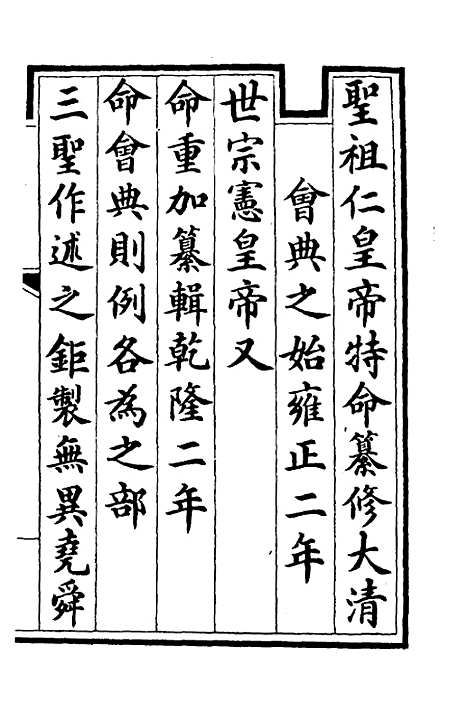 聖祖仁皇帝特命纂修大清
會典之始雍正二年
世宗憲皇帝又
命重加纂輯乾隆二年
命會典則例各為之部
三聖作述之鉅製無異堯舜